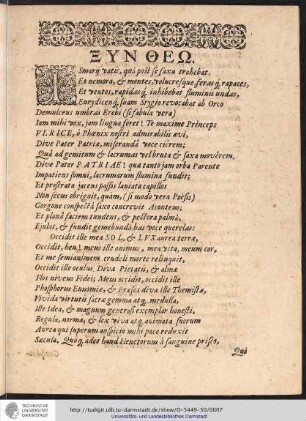 ΞΥΝ ΘΕΩ.
Ismarij vatis, qui post se saxa trahebat
Et nemora, & montes, volucresque ferasq́; rapaces,
Et ventos, rapidasq́; inhibebat fluminis undas,
Eurydicenq́; suam Stygio revocabat ab Orco
Demulcens umbras Erebi (si fabula vera)
Jam mihi vox, jam lingua foret! Te maxime Princeps
VLRICE, ô Phœnix nostri admirabilis ævi,
Dive Pater Patriæ, miserandâ voce cierem;
Quâ ad gemitum & lacrumas vel bruta & saxa movérem,
Dive Pater PATRIAE! quæ tanto jam orba Parente
Impatiens somni, lacrumarum flumina fundit;
Et prostrata jacens passis laniata capillis
Non secus obriguit, quam, (si modo vera Poësis)
Gorgone conspectâ saxo concrevit Aconteus;
Et planâ faciem tundens, & pectora palmâ,
Ejulat, & fundit gemebunda has voce querelas:
Occidit ille mea SOL, & LVX aurea terræ,
Occidit, heu, meus ille animus, mea vita, meum cor,
Et me semianimem crudeli morte relinquit,
Occidit ille oculus, Diva Pietatis, & alma
Fax nivea Fidei; Meus occidit, occidit ille
Phosphorus Eunomiæ, & Erases diva ille Thomista,
Vivida virtutis sacræ gemma atq́; medulla,
Ille Idea, & magnum generosi exemplar honesti,
Regula, norma, & lex viva atq́; animata suorum
Aurea qui superum auspicio mihi pace reduxit
Sæcula, Quoq́; alter haud Electorum à sanguine priscp,
Quò
TECHNISCHE
UNIVERSITÄT
DARMSTADT
http://tudigit.ulb.tu-darmstadt.de/show/O-5449-50/0007
Universitäts- und Landesbibliothek Darmstadt